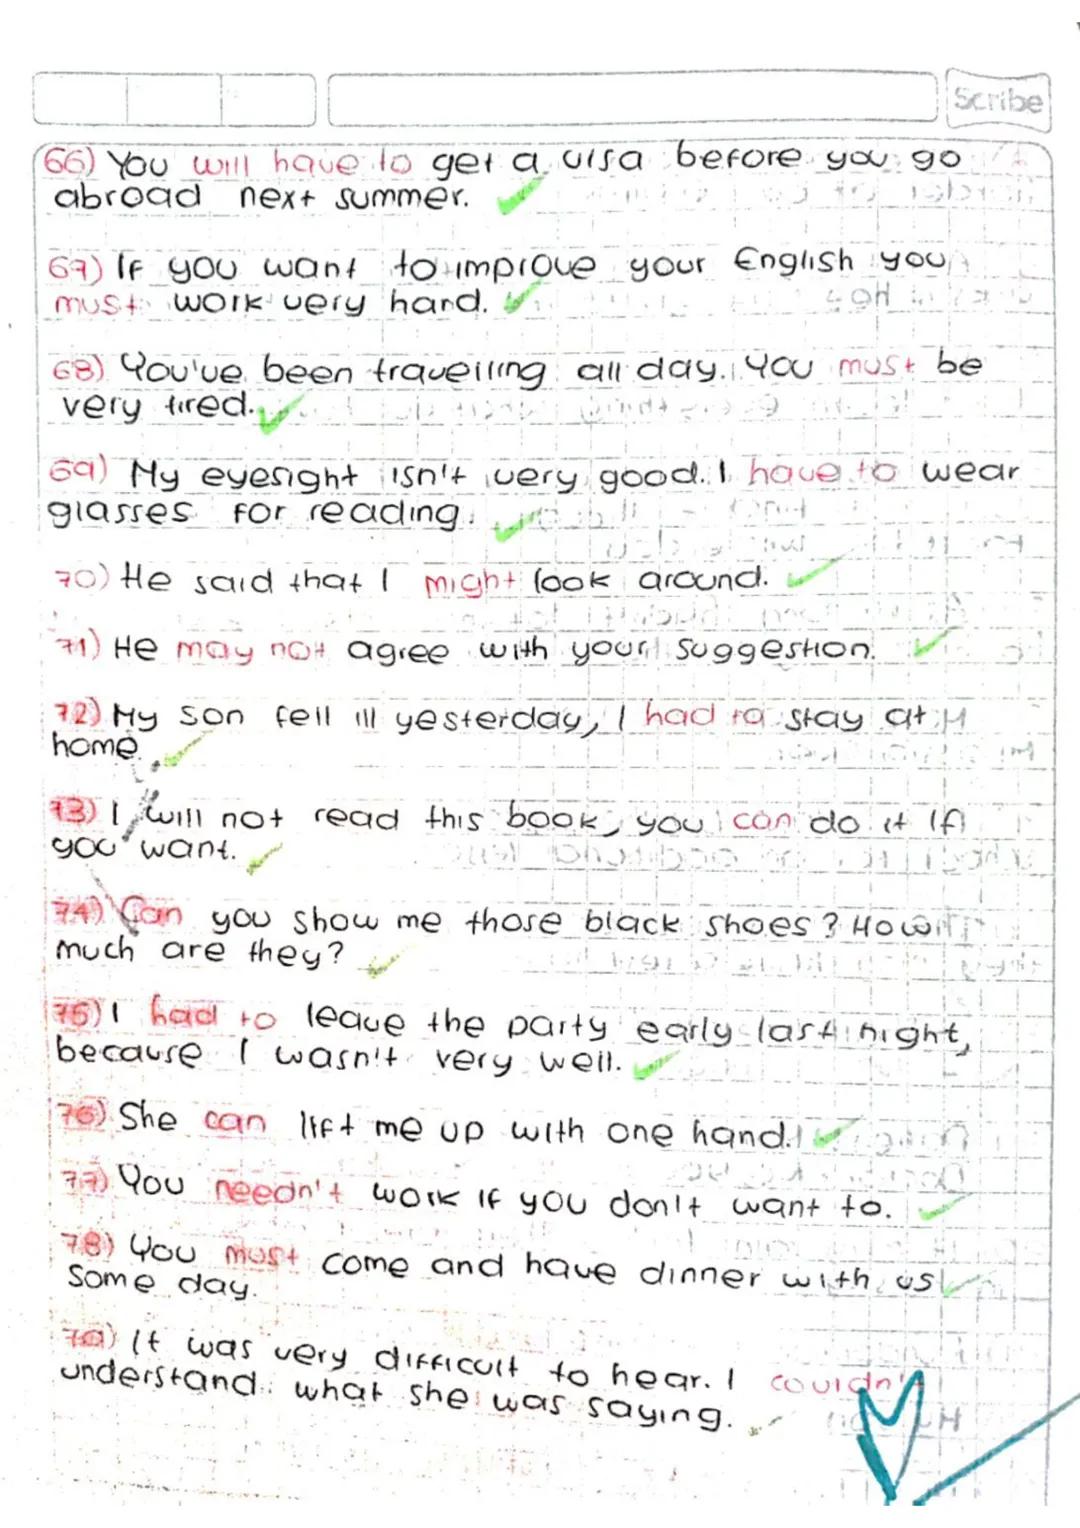 Scribe
66) You will have to get a visa before you go
abroad next summer.
67) If you want to improve your English you
must work very hard.
68) You've been travelling all day. You must be
very tired.
69) My eyesight isn't very good. I have to wear
glasses for reading.
70) He said that I might look around.
71) He may not agree with your suggestion.
72) My son fell ill yesterday, I had to stay at
home.
73) I will not read this book, you can do it if
you want.
74) Can you show me those black shoes? How
much are they?
75) I had to leave the party early last night,
because I wasn't very well.
76) She can lift me up with one hand.
77) You needn't work if you don't want to.
78) You must come and have dinner with us
some day.
79) It was very difficult to hear. I couldn't
understand what she was saying.